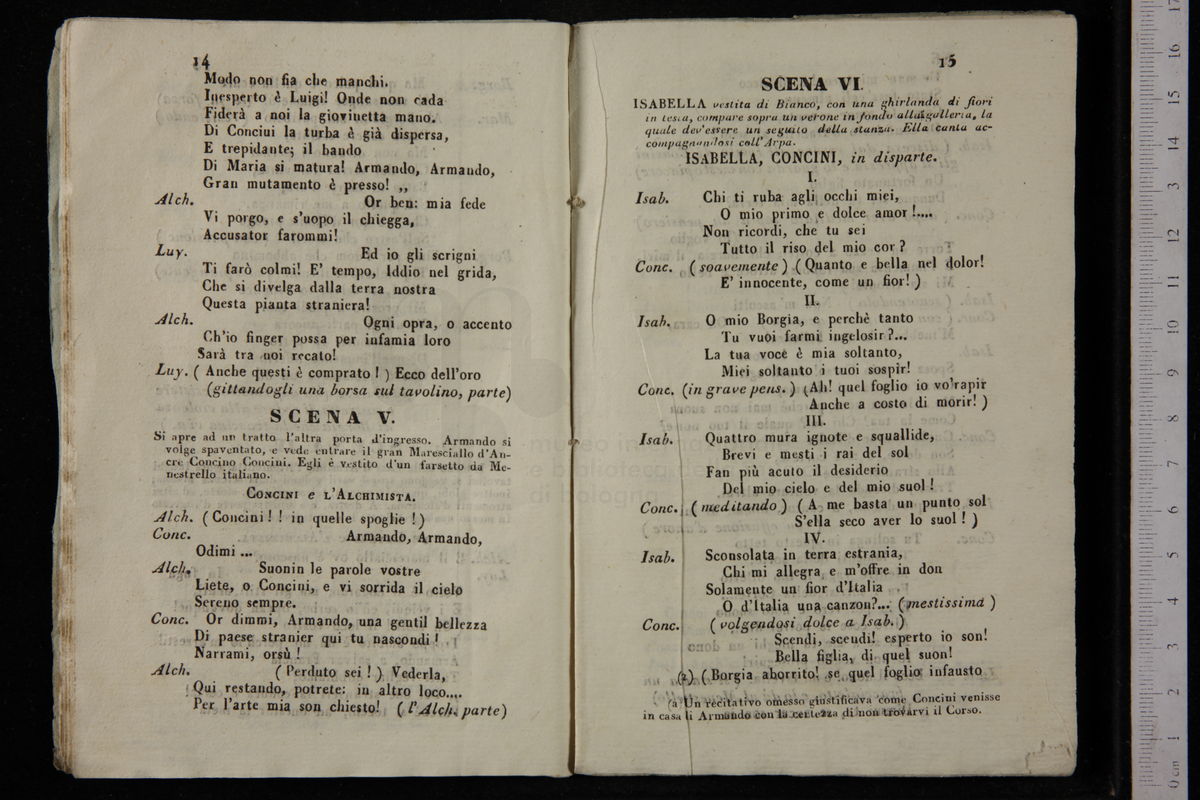 14
Modo non fia che manchi.
Inesperto è Luigi! Onde non cada
Fiderà a noi la giovinetta mano.
Di Concini la turba è già dispersa,
E trepidante; il bando
Di Maria si matura! Armando, Armando,
Gran mutamento è presso! ,,
Alch. Or ben: mia fede
Vi porgo, e s'uopo il chiegga,
Accusator farommi!
Luy. Ed io gli scrigni
Ti farò colmi! E' tempo, Iddio nel grida,
Che si divelga dalla terra nostra
Questa pianta straniera!
Alch. Ogni opra, o accento
Ch'io finger possa per infamia loro
Sarà tra noi recato!
Luy. ( Anche questi è comprato ! ) Ecco dell'oro
(gittandogli una borsa sul tavolino, parte)
SCENA V.
Si apre ad un tratto l'altra porta d'ingresso. Armando si
volge spaventato, e vede entrare il gran Maresciallo d'An-
cre Concino Concini. Egli è vestito d'un farsetto da Me-
nestrello italiano.
CONCINI e L'ALCHIMISTA.
Alch. ( Concini ! ! in quelle spoglie ! )
Conc. Armando, Armando,
Odimi ...
Alch. Suonin le parole vostre
Liete, o Concini, e vi sorrida il cielo
Sereno sempre.
Conc. Or dimmi, Armando, una gentil bellezza
Di paese stranier qui tu nascondi !
Narrami, orsù !
Alch. ( Perduto sei ! ) Vederla,
Qui restando, potrete: in altro loco....
Per l'arte mia son chiesto! ( l'Alch. parte)
15
SCENA VI.
ISABELLA vestita di Bianco, con una ghirlanda di fiori
in testa, compare sopra un verone in fondo alla galleria, la
quale dev'essere un seguito della stanza. Ella canta ac-
compagnandosi coll'Arpa.
ISABELLA, CONCINI, in disparte.
I.
Isab. Chi ti ruba agli occhi miei,
O mio primo e dolce amor !....
Non ricordi, che tu sei
Tutto il riso del mio cor ?
Conc. ( soavemente ) ( Quanto e bella nel dolor!
E' innocente, come un fior! )
II.
Isab. O mio Borgia, e perchè tanto
Tu vuoi farmi ingelosir ?...
La tua voce è mia soltanto,
Miei soltanto i tuoi sospir!
Conc. (in grave pens. ) (Ah! quel foglio io vo'rapir
Anche a costo di morir! )
III.
Isab. Quattro mura ignote e squallide,
Brevi e mesti i rai del sol
Fan più acuto il desiderio
Del mio cielo e del mio suol !
Conc. ( meditando ) ( A me basta un punto sol
S'ella seco aver lo suol ! )
IV.
Isab. Sconsolata in terra estrania,
Chi mi allegra e m'offre in don
Solamente un fior d'Italia
O d'Italia una canzon?... (mestissima )
Conc. ( volgendosi dolce a Isab. )
Scendi, scendi! esperto io son!
Bella figlia, di quel suon!
(a) ( Borgia aborrito! se quel foglio infausto
(a Un recitativo omesso giustificava come Concini venisse
in casa di Armando con la certezza di non trovarvi il Corso.